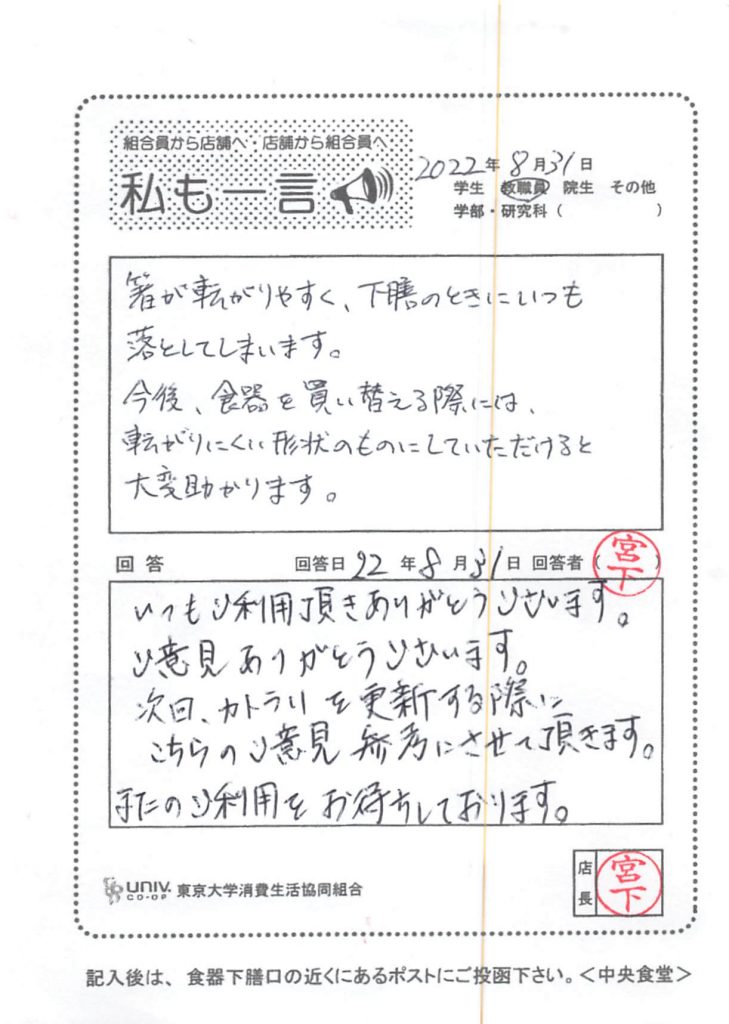 組合員から店舗へ・店舗から組合員へ
私も一言
2022年8月31日
学生 教職員 院生 その他
学部・研究科（　　　）
箸が転がりやすく、下膳のときにいつも
落としてしまいます。
今後、食器を買い替える際には、
転がりにくい形状のものにしていただけると
大変助かります。
回答 回答日22年8月31日 回答者（宮下）
いつもご利用頂きありがとうございます。
ご意見ありがとうございます。
次回、カトラリを更新する際に
こちらのご意見参考にさせて頂きます。
またのご利用をお待ちしております。
UNIV. CO-OP 東京大学消費生活協同組合
店長 宮下
記入後は、食器下膳口の近くにあるポストにご投函下さい。＜中央食堂＞